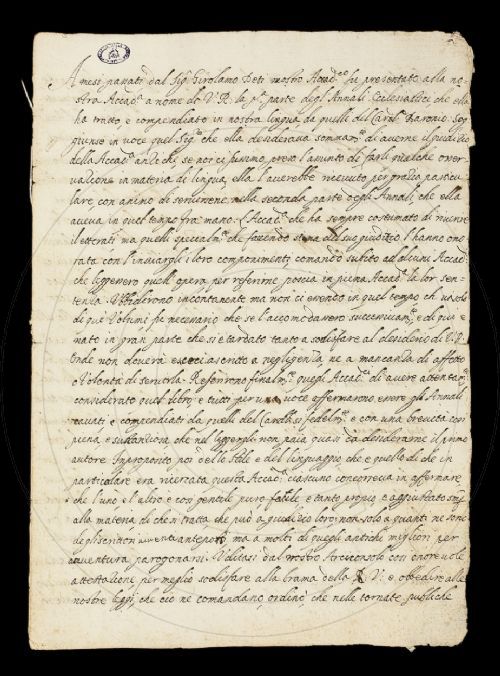 A mesi passati dal Sig.r Girolamo Deti nostro Accad.co fu presentato alla no=
stra Accad.a a nome di V.R. la p.a parte degl'Annali Ecclesiastici che ella
ha tratto, e compendiato in nostra lingua da quelli del Card.l Baronio. Sog
giunse in voce quel Sig.re che ella desiderava sommam.te di averne il giudizio
della Accad.a anzi che se noi ci fussimo preso l'assunto di farli qualche osser
vazione in materia di lingua, ella l'averebbe ricevuto per grazia particu=
lare, con animo di servirsene nella seconda parte degli Annali, che ella
aveva in quel tempo fra mano. L'Accad.a che ha sempre costumato di riverire
i letterati ma quelli specialm.te che facendo stima del suo giudizio l'hanno ono
rata con l'inviargli i loro componimenti, comandò subito ad alcuni Accad.ci
che leggessero quell'opera per referirne poscia in piena Accad.a la lor sen=
tenza. Ubbidirono incontanente ma non ci essendo in quel tempo ch'un solo
di quei Volumi fu necessario che se l'accomodassero successivam.te e di qui è
nato in gran parte che si è tardato tanto a sodisfare al desiderio di V.R.
Onde non doverà esserci ascritto a negligenza, ne a mancanza di affetto
o Volontà di servirla. Referirono finalm.te quegli Accad.ci di avere attentam.te
considerato quel libro, e tutti per una voce affermarono essere gli Annali
cavati e compendiati da quelli del Card.le sì fedelm.te e con una brevità così
piena, e sustanziosa, che nel leggergli non paia quasi da desiderarne il primo
autore. In proposito poi dello stile e del linguaggio, che è quello di che in
particolare era ricercata questa Accad.a ciascuno concorreva in affermare
che l'uno, e l'altro è così gentile puro, facile e tanto propio, e aggiustato
alla materia di che si tratta che può a giudizio loro, non solo a quanti ne sono
degli scrittori viventi anteporsi ma a molti di quegli antichi migliori per
avventura paragonarsi. Uditasi dal nostro Arciconsolo così onorevole
attestazione per meglio sodisfare alla brama della R. V. e obbedire alle
nostre leggi, che ciò ne comandano, ordinò che nelle tornate publiche